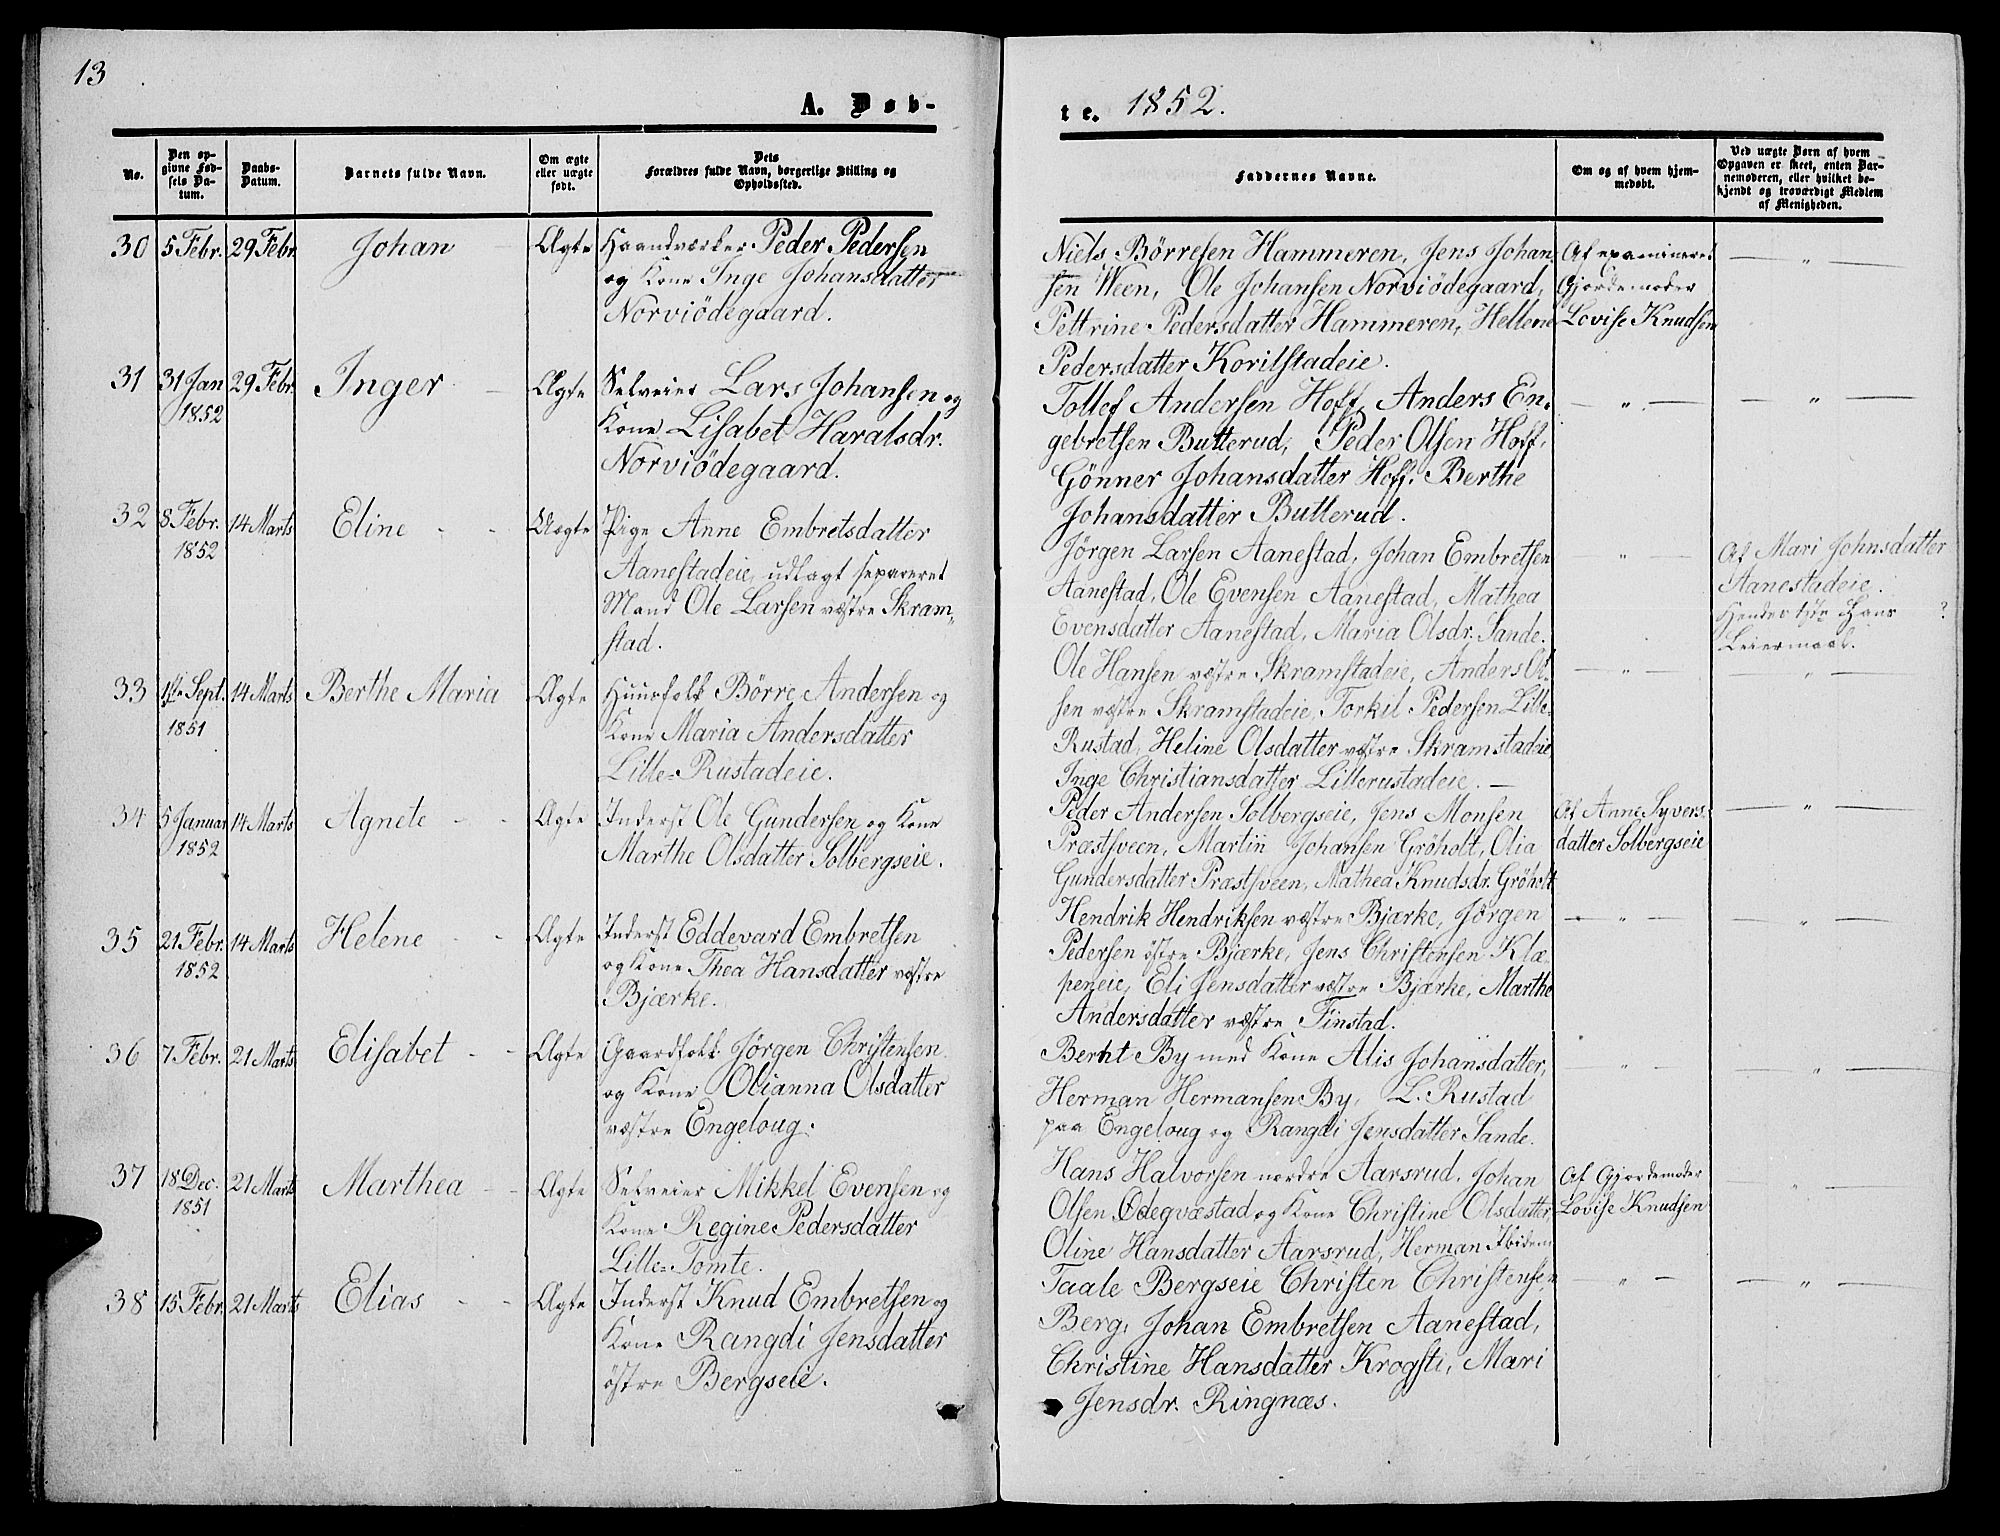 13
A. Døb-
No.
Den op-
givne Fød-
sels Da-
tum.
Daabs-
Datum.
Barnets fulde Navn.
Om ægte
eller uægte
født.
Dets
Forældres fulde Navn, borgerlige Stilling og
Opholdssted.
30 5 Febr. 29 Febr. Johan Ægte Haandværker Peder Pedersen
og Kone Inge Johansdatter
Norviödegaard.
31 31 Jan 29 Febr. Inger Ægte Selveier Lars Johansen og
1852 Kone Lisabet Haralsdr.
Norviödegaard.
32 8 Febr. 14 Marts Eline Uægte Pige Anne Embretsdatter
1852 Aanestadeie, udlagt separeret
Mand Ole Larsen vestre Skram-
stad.
33 1ste Sept. 14 Marts Berthe Maria Ægte Huusfolk Börre Andersen og
1851 Kone Maria Andersdatter
Lille-Rustadeie.
34 5 Januar 14 Marts Agnete Ægte Inderst Ole Gundersen og Kone
1852 Marthe Olsdatter Solbergseie.
35 21 Febr. 14 Marts Helene Ægte Inderst Eddevard Embretsen
1852 og Kone Thea Hansdatter vestre
Bjærke.
36 7 Febr. 21 Marts Elisabet Ægte Gaardfolk Jörgen Christensen
og Kone Olianna Olsdatter
vestre Engeloug.
37 18 Dec. 21 Marts Marthea Ægte Selveier Mikkel Evensen og
1851 Kone Regine Pedersdatter
Lille-Tomte.
38 15 Febr. 21 Marts Elias Ægte Inderst Knud Embretsen og
Kone Rangdi Jensdatter
östre Bergseie.
te. 1852.
Faddernes Navne.
Om og af hvem hjem-
medøbt.
Ved uægte Børn af hvem
Opgaven er skeet, enten Bar-
nemoderen, eller hvilket be-
kjendt og troværdigt Medlem
af Menigheden.
Niels Börresen Hammeren, Jens Johan- Af examineret — " —
sen Ween, Ole Johansen Norviödegaard, Gjordemoder
Pettrine Pedersdatter Hammeren, Hellene Lovise Knudsen
Pedersdatter Korilstadeie.
Tollef Andersen Hoff, Anders En- — " — — " —
gebretsen Butterud, Peder Olsen Hoff,
Gönner Johansdatter Hoff. Berthe
Johansdatter Butterud.
Jörgen Larsen Aanestad, Johan Embretsen " — Af Mari Johnsdatter
Aanestad, Ole Evensen Aanestad, Mathea Aanestadeie.
Evensdatter Aanestad, Maria Olsdr. Sande. Hendes 1ste Hans ?
Leiermaal.
Ole Hansen vestre Skramstadeie, Anders Ol- — " — — " —
sen vestre Skramstadeie, Torkil Pedersen Lille-
Rustad, Heline Olsdatter vestre Skramstadeie
Inge Christiansdatter Lillerustadeie. —
Peder Andersen Solbergseie, Jens Monsen Af Anne Syvers- — " —
Præstsveen, Martin Johansen Gröholt, Olia datter Solbergseie
Gundersdatter Præstsveen, Mathea Knudsdr. Gröholt
Hendrik Hendriksen vestre Bjærke, Jörgen — " — — " —
Pedersen östre Bjærke, Jens Christensen Klæ-
peneie, Eli Jensdatter vestre Bjærke, Marthe
Andersdatter vestre Finstad.
Bernt By med Kone Alis Johansdatter, — " — — " —
Herman Hermansen By, L. Rustad
paa Engeloug og Rangdi Jensdatter Sande.
Hans Halvorsen nordre Aarsrud, Johan Af Gjordemoder — " —
Olsen Ödegvæstad og Kone Christine Olsdatter, Lovise Knudsen
Oline Hansdatter Aarsrud, Herman Ibidem
Taale Bergseie Christen Christensen — " — — " —
Berg, Johan Embretsen Aanestad,
Christine Hansdatter Krogsti, Mari
Jensdr. Ringnæs.